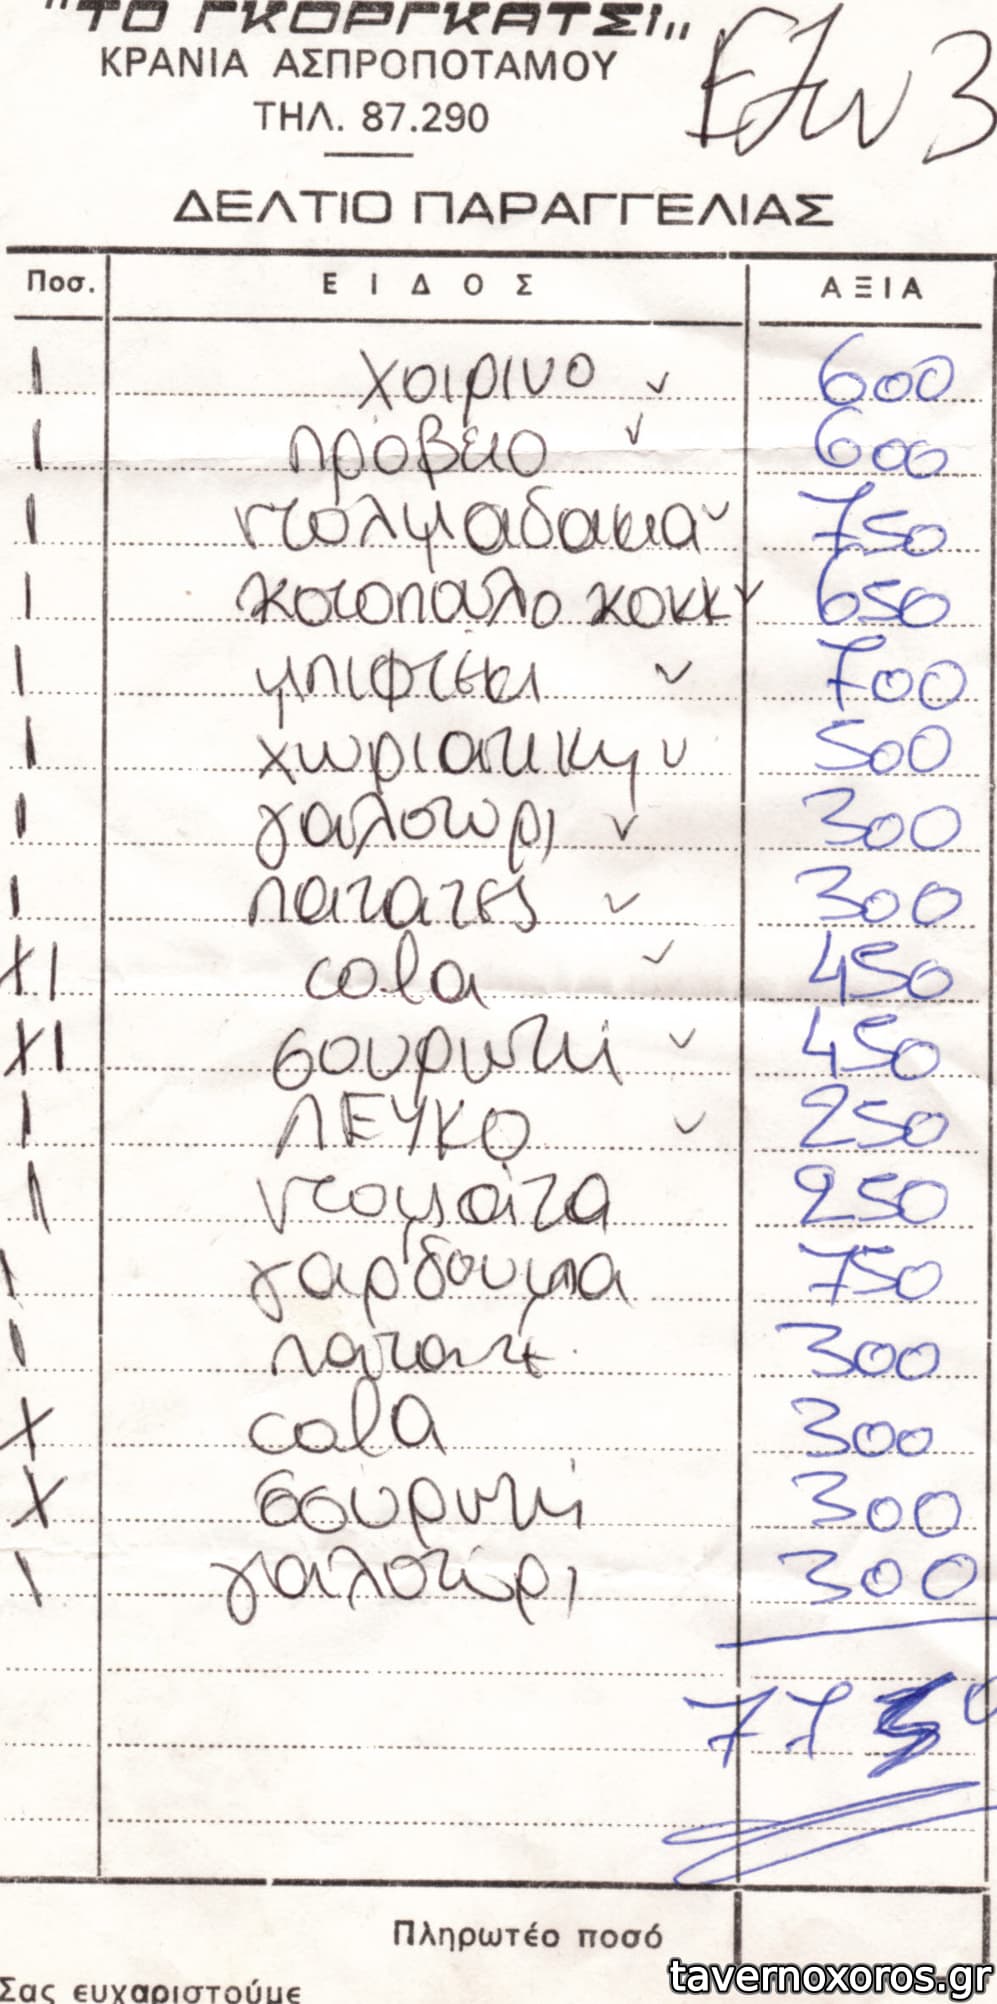 "ΤΟ ΓΚΟΡΓΚΑΤΣΙ"
ΚΡΑΝΙΑ ΑΣΠΡΟΠΟΤΑΜΟΥ
ΤΗΛ. 87.290
Εξω 3
ΔΕΛΤΙΟ ΠΑΡΑΓΓΕΛΙΑΣ
Ποσ. ΕΙΔΟΣ ΑΞΙΑ
1 χοιρινο 600
1 προβειο 600
1 ντολμαδακια 750
1 κοτοπουλο κοκκ 650
1 μπιφτεκι 700
1 χωριατικη 500
1 γαλοτυρι 300
1 πατατες 300
X1 cola 450
X1 σουρωτη 450
1 ΛΕΥΚΟ 250
1 ντομάτα 250
1 γαρδουμπα 750
1 πατατε 300
X cola 300
X σουρωτή 300
1 γαλοτύρι 300
7750
Πληρωτέο ποσό
Σας ευχαριστούμε
tavernoxoros.gr